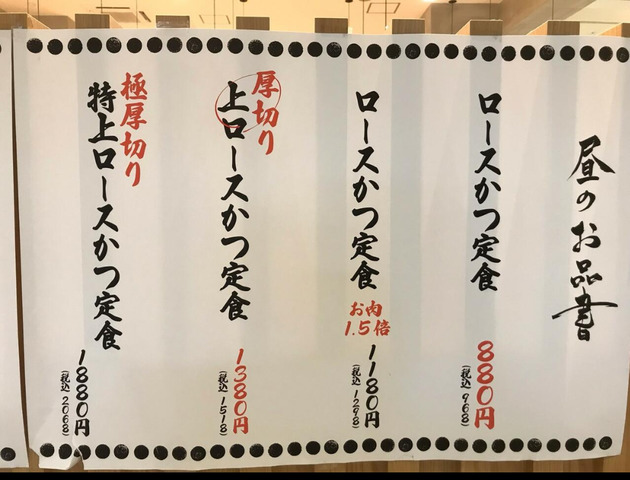 昼のお品書
ロースかつ定食
880円
(税込 968)
ロースかつ定食
お肉
1.5倍
1180円
(税込 1298)
厚切り
上ロースかつ定食
1380円
(税込 1518)
極厚切り
特上ロースかつ定食
1880円
(税込 2068)